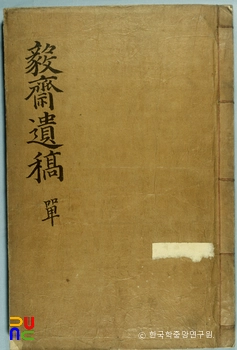 毅齋遺稿
單
RUne
© 한국학중앙연구원